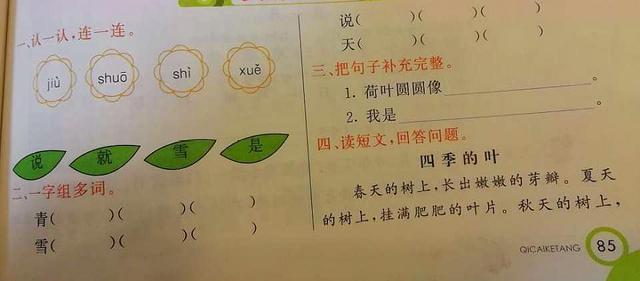 一、认一认,连一连。
jiù shuō shì xuě
说 就 雪 是
二、一字组多词。
青( )( )( )
雪( )( )( )
说( )( )( )
天( )( )( )
三、把句子补充完整。
1. 荷叶圆圆像 。
2. 我是 。
四、读短文,回答问题。
四季的叶
春天的树上,长出嫩嫩的芽瓣。夏天
的树上,挂满肥肥的叶片。秋天的树上,
QICAIKETANG 85